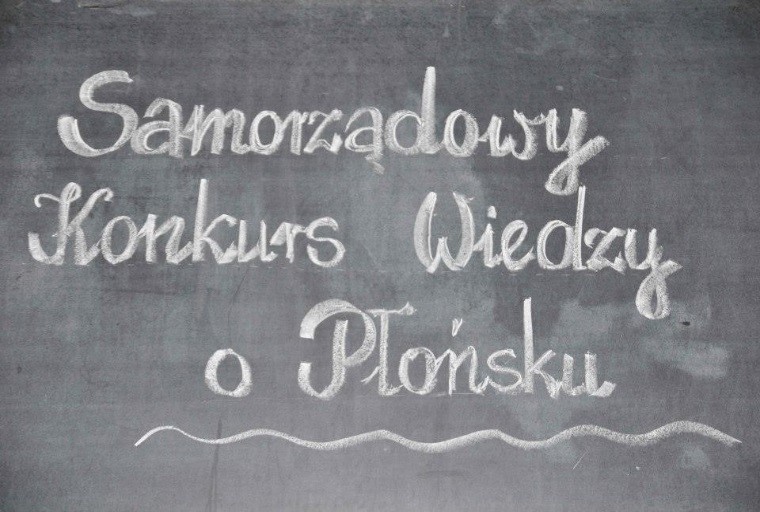 Samorządowy
Konkurs Wiedzy
o Płońsku